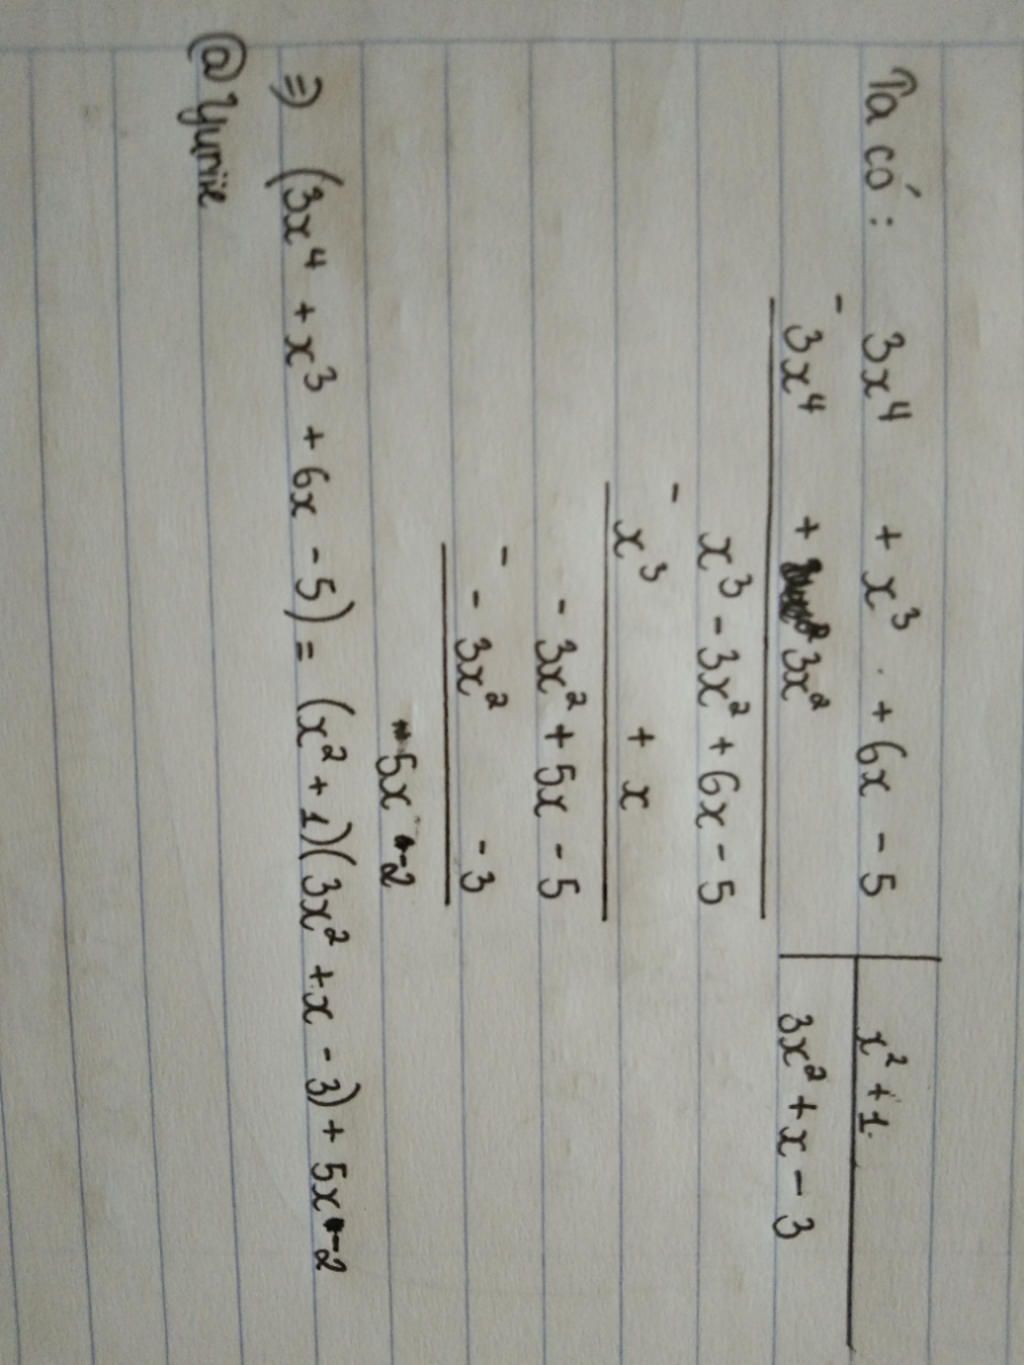 Ta có: 3x⁴ + x³ + 6x - 5 | x² + 1
- 3x⁴ + 3x² | 3x² + x - 3
x³ - 3x² + 6x - 5
- x³ + x
- 3x² + 5x - 5
- - 3x² - 3
5x - 2
⇒ (3x⁴ + x³ + 6x - 5) = (x² + 1)(3x² + x - 3) + 5x - 2
@Yuniie